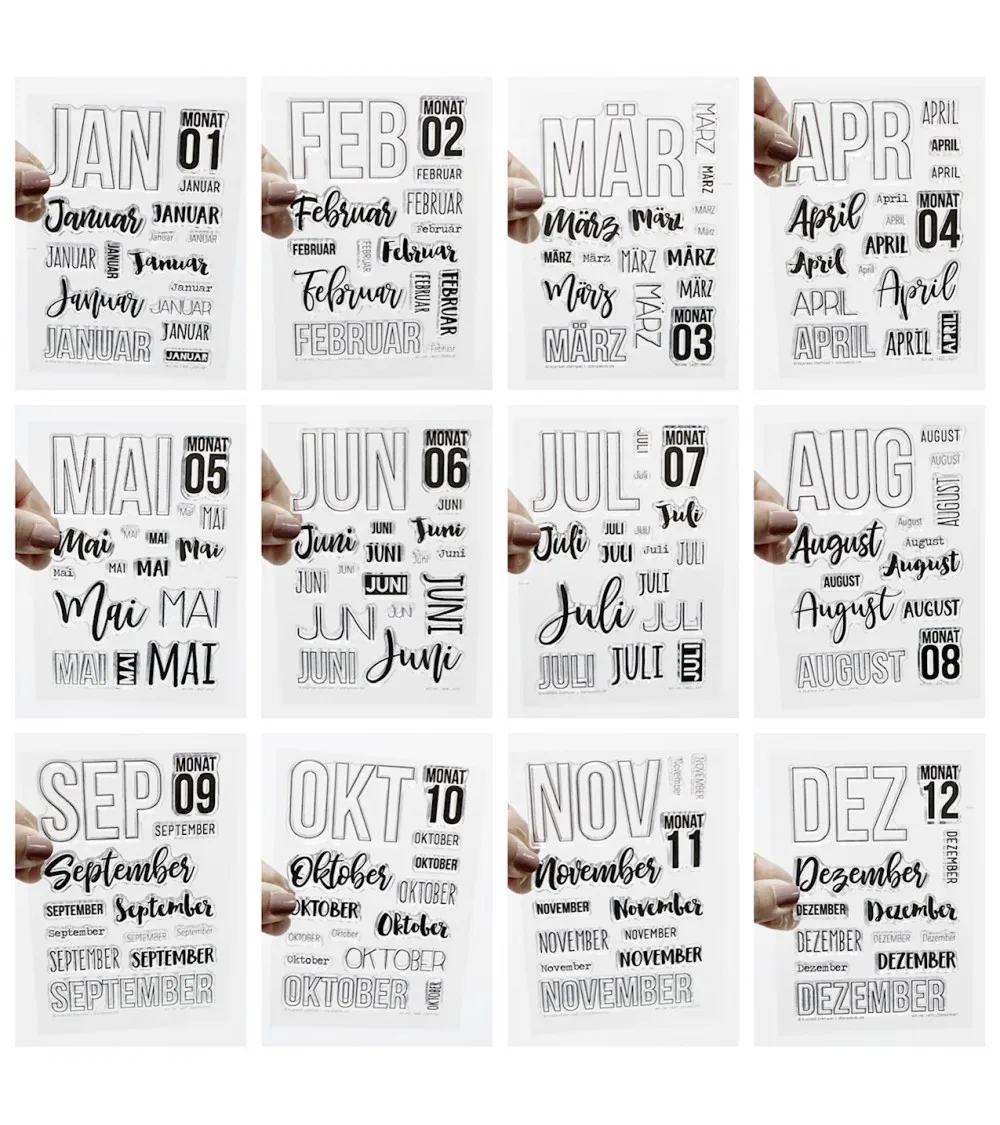 JAN
MONAT
01
JANUAR
Januar JANUAR
Januar JANUAR
JANUAR JANUAR Januar
Januar
Januar JANUAR
JANUAR
JANUAR JANUAR
FEB
MONAT
02
FEBRUAR
Februar FEBRUAR
Februar
FEBRUAR FEBRUAR Februar
Februar FEBRUAR FEBRUAR
FEBRUAR Februar
MÄR
MÄRZ
MÄRZ
März März MÄRZ
März
MÄRZ März MÄRZ MÄRZ
März MÄRZ MÄRZ
MÄRZ
MONAT
03
APR
APRIL
APRIL
APRIL
April April
APRIL
MONAT
04
APRIL
April April
APRIL April
APRIL APRIL APRIL
MAI
MONAT
05
Mai MAI
Mai MAI MAI Mai
Mai MAI MAI
Mai MAI
MAI MAI MAI
JUN
MONAT
06
JUNI
Juni JUNI Juni
JUNI Juni Juni
JUNI JUNI JUNI JUNI
JUNI JUNI
JUNI Juni
JUL
JULI
Juli
MONAT
07
Juli JULI Juli Juli
JULI Juli JULI
Juli JULI
JULI
JULI JULI JULI
AUG
AUGUST
AUGUST
AUGUST
August August
August
AUGUST August
August AUGUST
AUGUST
MONAT
08
SEP
MONAT
09
SEPTEMBER
September
SEPTEMBER September
September SEPTEMBER September
SEPTEMBER SEPTEMBER
SEPTEMBER
OKT
MONAT
10
OKTOBER
Oktober OKTOBER
OKTOBER
OKTOBER Oktober
OKTOBER Oktober
Oktober OKTOBER
OKTOBER OKTOBER
NOV
November NOVEMBER
MONAT
11
November
NOVEMBER November
NOVEMBER NOVEMBER
November NOVEMBER
NOVEMBER
DEZ
MONAT
12
DEZEMBER
Dezember
DEZEMBER Dezember
DEZEMBER DEZEMBER Dezember
Dezember DEZEMBER
DEZEMBER